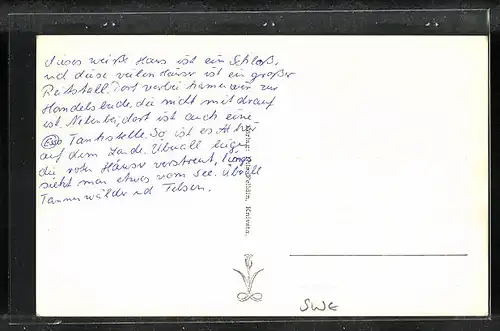 dieses weiße Haus ist ein Schloß,
und diese vielen Häuser ist ein großer
Reitstall. Dort vorbei kamen wir zur
Handels bude, die nicht mit drauf
ist. Nebenbei, dort ist auch eine
Esso Tankstelle. So ist es hier
auf dem Lande. Überall liegen
die roten Häuser verstreut,
sieht man etwas vom See. Überall
Tannenwälder und Felsen.
Knivsta.
SWE